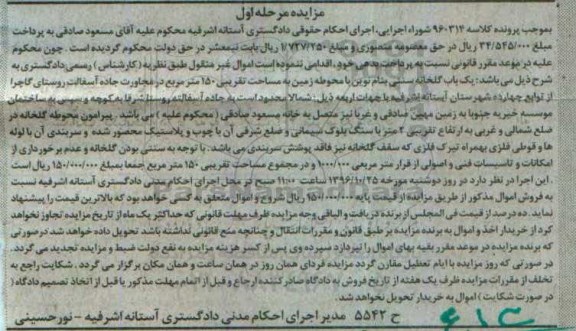 مزایده مرحله اول
بموجب پرونده کلاسه ۹۶۰۳۱۳ شوراء اجرایی، اجرای احکام حقوقی دادگستری آستانه اشرفیه محکوم علیه آقای مسعود صادقی به پرداخت
مبلغ ۳۴/۵۴۵/۰۰۰ ریال در حق معصومه منصوری و مبلغ ۱/۷۲۷/۲۵۰ ریال بابت نیمعشر در حق دولت محکوم گردیده است. چون محکوم
علیه در موعد مقرر قانونی نسبت به پرداخت بدهی خود، اقدامی ننموده است اموال غیر منقول طبق نظریه (کارشناس) رسمی دادگستری به
شرح ذیل می باشد: یک باب گلخانه سنتی بنام نوین با محوطه زمین به مساحت تقریبی ۱۵۰ متر مربع در مجاورت جاده آسفالت روستای گاچرا
از توابع چهارده شهرستان آستانه اشرفیه با جهات اربعه ذیل: شمالا محدود است به جاده آسفالته روستا شرقا به کوچه و سپس به ساختمان
موسسه خیریه جنوبا به زمین مهین صادقی و غربا نیز متصل به خانه مسعود صادقی (محکوم علیه) می باشد. پیرامون محوطه گلخانه در
ضلع شمالی و غربی به ارتفاع تقریبی ۲ متر با سنگ بلوک سیمانی و ضلع شرقی آن با چوب و پلاستیک محصور شده و سربندی آن با لوله
ها و قوطی فلزی بهمراه تیرک فلزی که سقف گلخانه نیز فاقد پوشش سربندی می باشد. با توجه به سنتی بودن گلخانه و عدم برخورداری از
امکانات و تاسیسات فنی و اصولی از قرار متر مربعی ۱/۰۰۰/۰۰۰ و در مجموع مساحت تقریبی ۱۵۰ متر مربع جمعا بمبلغ ۱۵۰/۰۰۰/۰۰۰ ریال است
. این اجرا در نظر دارد در روز دوشنبه مورخه ۱۳۹۶/۱۰/۲۵ ساعت ۱۱:۰۰ صبح در محل اجرای احکام مدنی دادگستری آستانه اشرفیه نسبت
به فروش اموال مذکور از طریق مزایده از قیمت پایه ۱۵۰/۰۰۰/۰۰۰ ریال شروع و اموال متعلق به کسی خواهد بود که بالاترین قیمت را پیشنهاد
نماید. ده درصد از قیمت فی المجلس از برنده دریافت و الباقی وجه مزایده ظرف مهلت قانونی که حداکثر یک ماه از تاریخ مزایده تجاوز نخواهد
کرد از خریدار اخذ و اموال به برنده مزایده بر طبق قانون و مقررات انتقال و چنانچه منع قانونی نداشته باشد تحویل داده خواهد شد. در صورتی
که برنده مزایده در موعد مقرر بقیه بهای اموال را نپردازد سپرده وی پس از کسر هزینه مزایده به نفع دولت ضبط و مزایده تجدید می گردد.
در صورتی که روز مزایده با ایام تعطیل مقارن گردد مزایده فردای همان روز در همان ساعت و همان مکان برگزار می گردد. شکایت راجع به
تخلف از مقررات مزایده ظرف یک هفته از تاریخ فروش به دادگاه صادر کننده ارجاع و قبل از اتمام مهلت مذکور یا قبل از اتخاذ تصمیم دادگاه (
در صورت شکایت) اموال به خریدار تحویل نخواهد شد.
ح ۵۵۴۲ مدیر اجرای احکام مدنی دادگستری آستانه اشرفیه - نورحسینی
۶۱۳